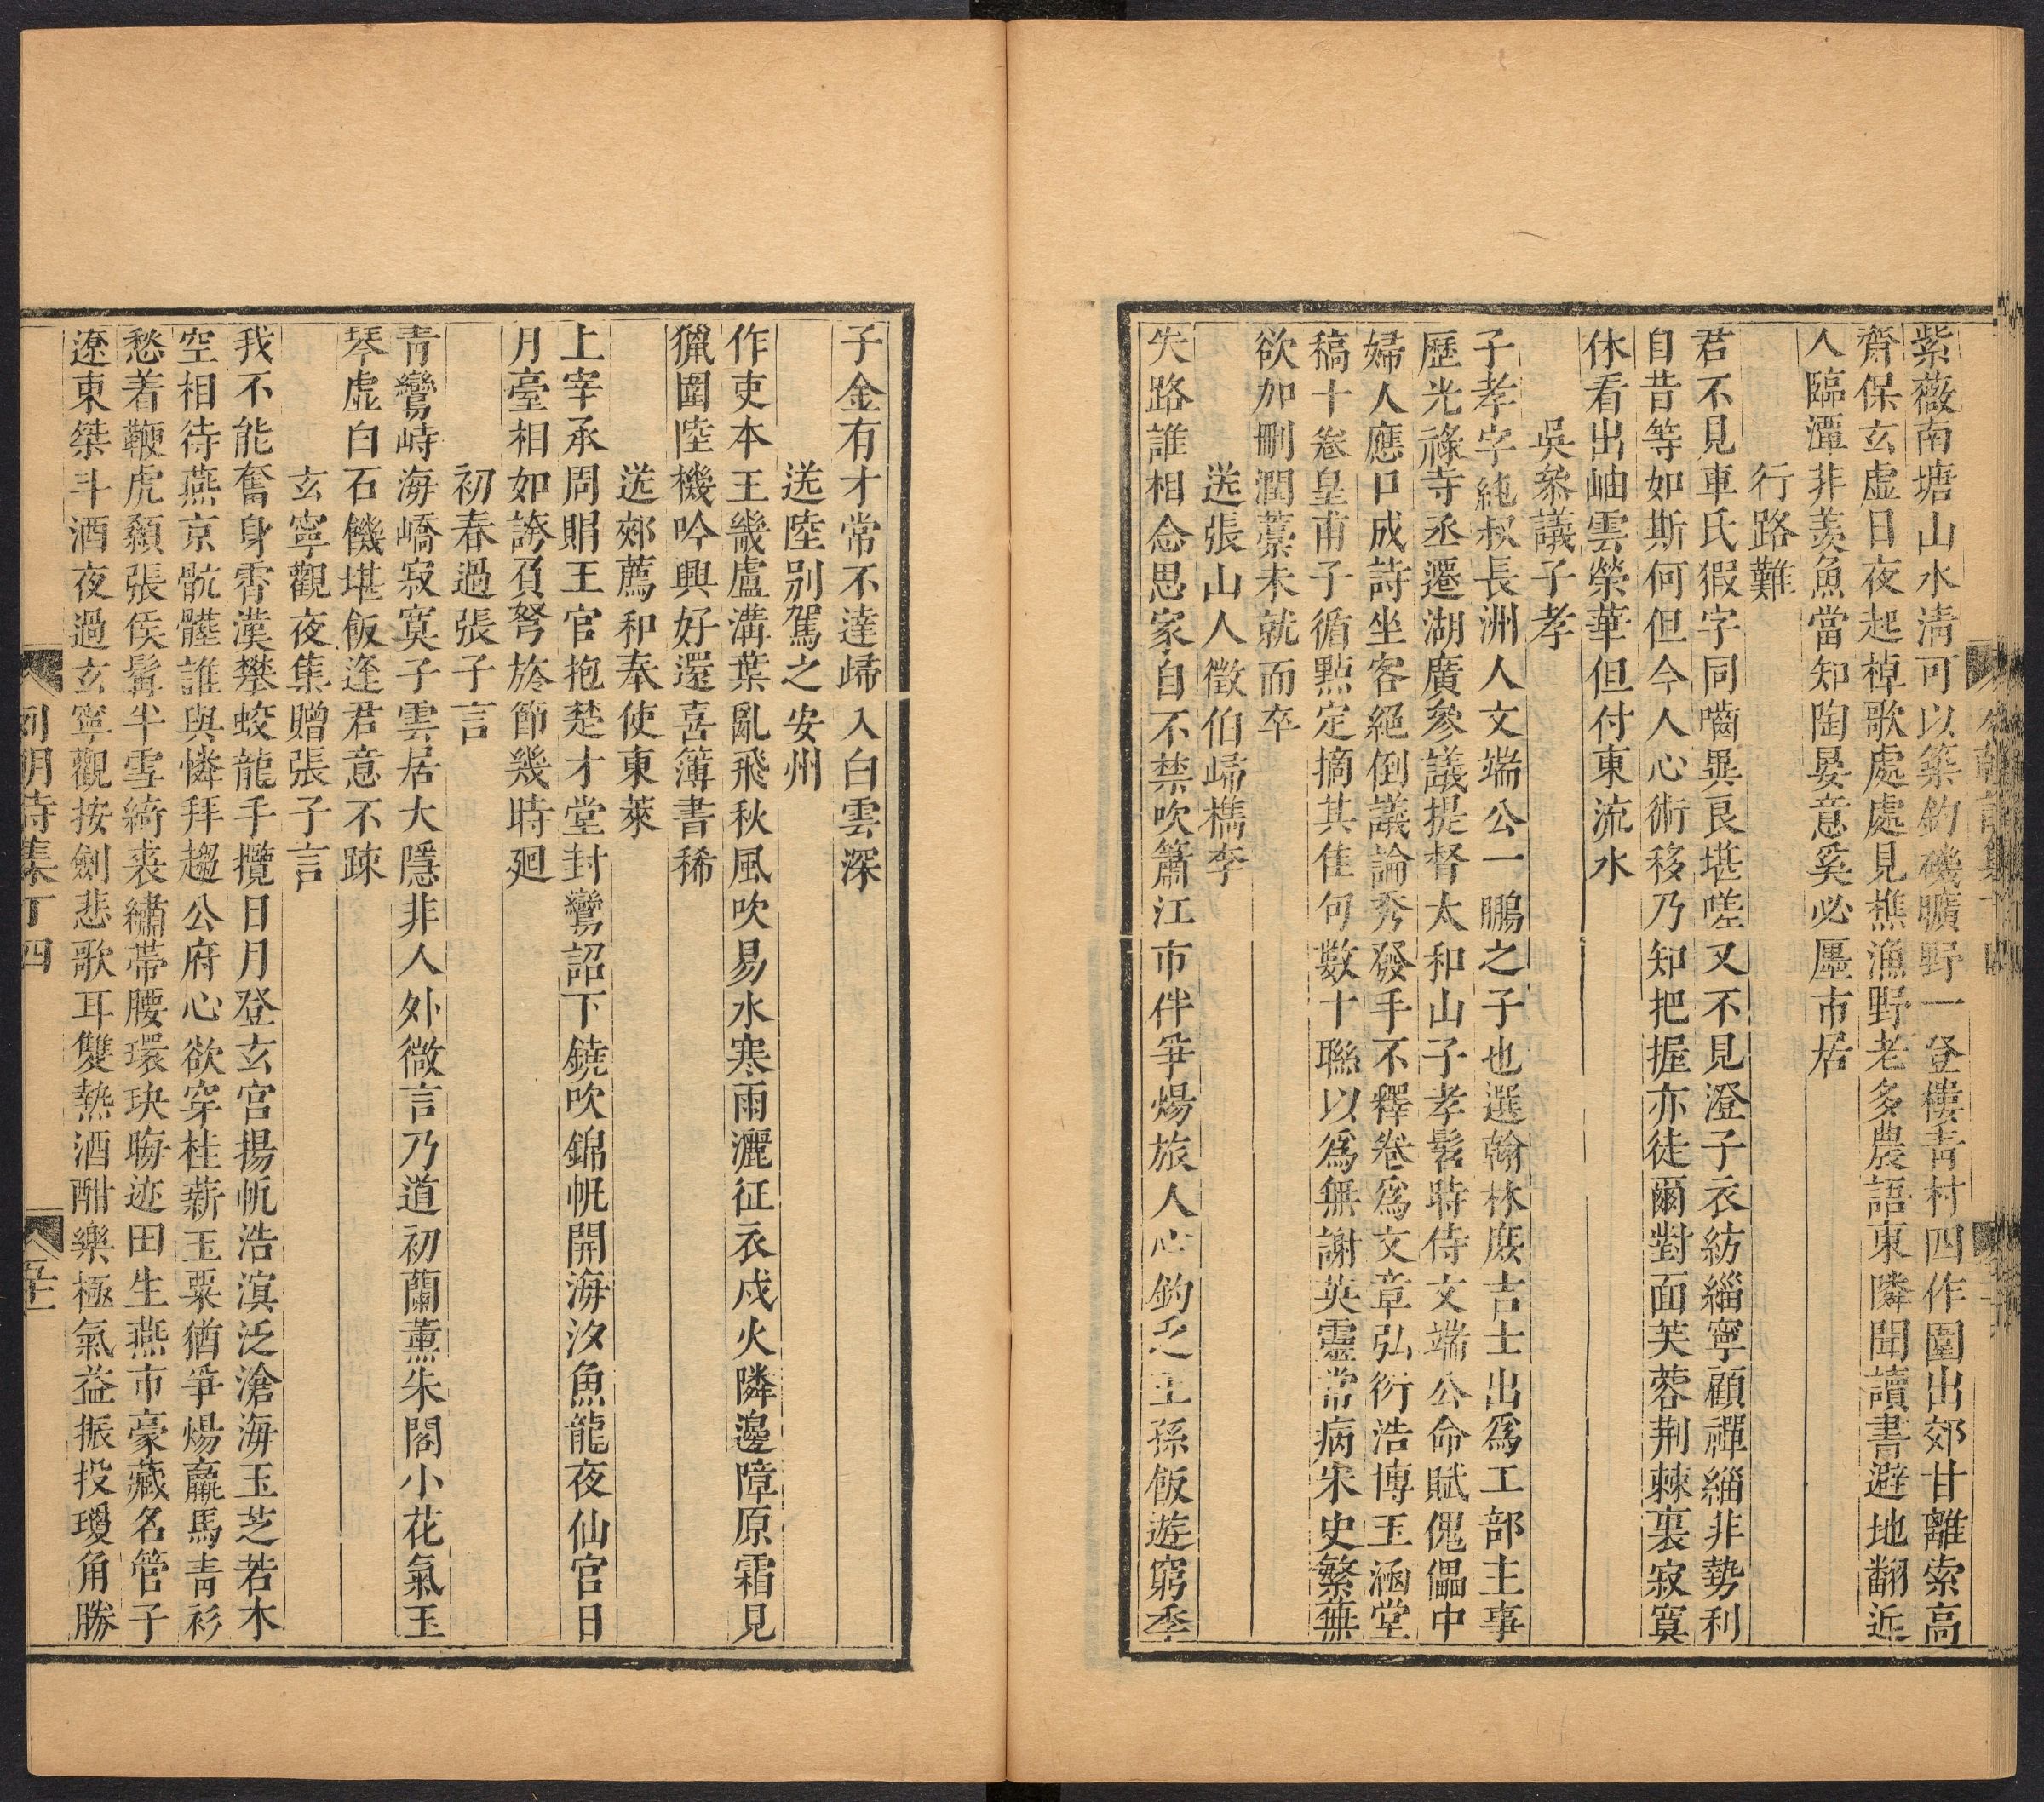 紫薇南塘山水清可以築釣磯曠野一登樓青村四作圍出郊甘離索高
齋保玄虛日夜起棹歌處處見樵漁野老多農語東隣聞讀書避地翻近
人臨潭非羨魚當知陶晏意奚必廛市居
行路難
君不見車氏猳字同嚙異良堪嗟又不見澄子衣紡緇寧顧禪緇非勢利
自昔等如斯何但今人心術移乃知把握亦徒爾對面芙蓉荆棘裏寂寞
休看出岫雲榮華但付東流水
吳叅議子孝
子孝字純叔長洲人文端公一鵬之子也選翰林庶吉士出爲工部主事
歷光祿寺丞遷湖廣參議提督太和山子孝髫時侍文端公命賦傀儡中
婦人應口成詩坐客絕倒議論秀發手不釋卷爲文章弘衍浩博玉涵堂
稿十卷皇甫子循㸃定摘其佳句數十聯以爲無謝英靈常病宋史繁蕪
欲加刪潤藁未就而卒
送張山人徵伯歸檇李
失路誰相念思家自不禁吹簫江市伴爭煬旅人心釣乏王孫飯遊窮季
子金有才常不達歸入白雲深
送陸别駕之安州
作吏本王畿盧溝葉亂飛秋風吹易水寒雨灑征衣戍火隣邊障原霜見
獵圍陸機吟興好還喜簿書稀
送郟薦和奉使東萊
上宰承周賵王官抱楚才堂封鸞詔下鐃吹錦帆開海汐魚龍夜仙官日
月臺相如誇負弩旌節幾時廻
初春過張子言
靑鸞峙海嶠寂寞子雲居大隱非人外微言乃道初蘭薰朱閣小花氣玉
琴虛白石饑堪飯逢君意不踈
玄寧觀夜集贈張子言
我不能奮身霄漢攀蛟龍手攬日月登玄宮揚帆浩溟泛滄海玉芝若木
空相待燕京骯髒誰與憐拜趨公府心欲穿桂薪玉粟猶爭煬羸馬靑衫
愁着鞭虎頷張侯鬢半雪綺裘繡帶腰環玦晦迹田生燕市豪藏名管子
遼東桀斗酒夜過玄寧觀按劍悲歌耳雙熱酒酣樂極氣益振投瓊角勝
列朝詩集丁四